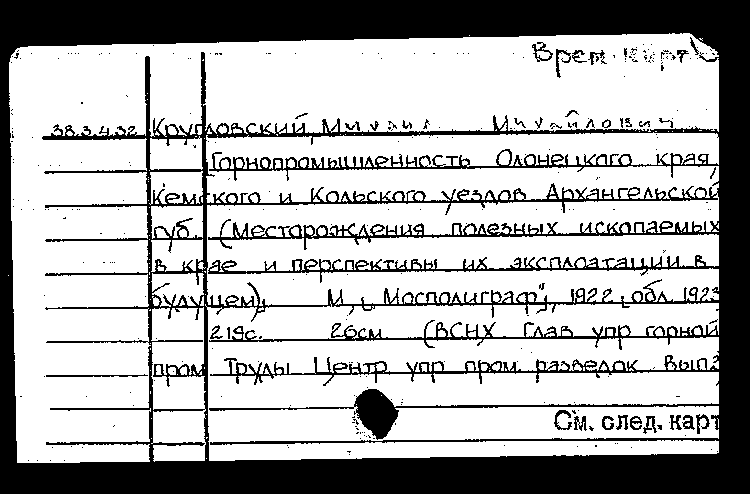 Врем. карт
38.3.4.32 Кругловский, Михаил Михайлович
Горнопромышленность Олонецкого края,
Кемского и Кольского уездов Архангельской
губ. (Месторождения полезных ископаемых
в крае и перспективы их эксплоатации в
будущем). М., „Мосполиграф", 1922, обл. 1923
219с. 26см. (ВСНХ. Глав упр горной
пром Труды Центр упр пром разведок Вып3
См. след. карт